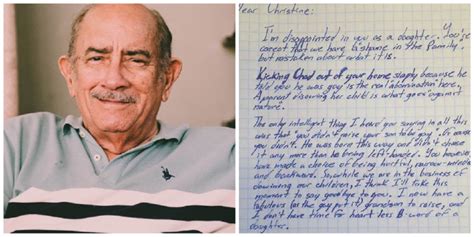 Dear Christine:
I'm disappointed in you as a daughter. You're
correct that we have "a shame in the family",
but mistaken about what it is.
Kicking Chad out of your home simply because he
told you he was gay is the real abomination here.
A parent disowning her child is what goes "against
nature".
The only intelligent thing I heard you saying in all this
was that "you didn't raise your son to be gay". Of course
you didn't. He was born this way and didn't choose
it any more than he being left-handed. You however,
have made a choice of being hurtful, narrow-minded
and backward. So, while we are in the business of
disowning our children, I think I'll take this
moment to say goodbye to you. I now have a
fabulous (as the gay put it) grandson to raise, and
I don't have time for heart-less B-word of a
daughter.